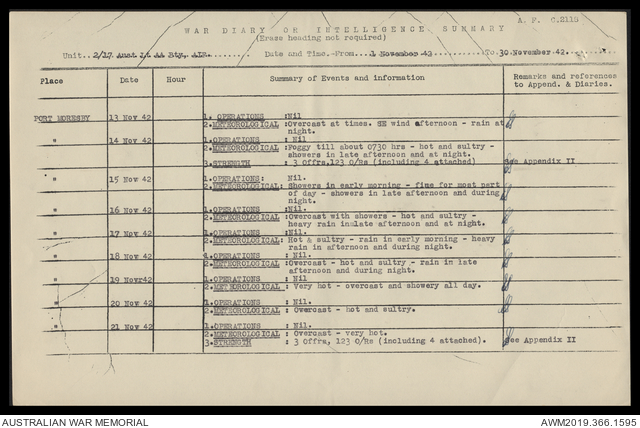 A. F. C.2118
WAR DIARY OR INTELLIGENCE SUMMARY
(Erase heading not required)
Unit. 2/17 Aust Lt AA Bty, AIF. Date and Time.-From. 1 November 42. To 30 November 42.
Place Date Hour Summary of Events and information Remarks and references to Append. & Diaries.
PORT MORESBY 13 Nov 42 1. OPERATIONS :Nil
2. METEOROLOGICAL :Overcast at times. SE wind afternoon - rain at
night.
" 14 Nov 42 1. OPERATIONS : Nil
2. METEOROLOGICAL :Foggy till about 0730 hrs - hot and sultry -
showers in late afternoon and at night.
3. STRENGTH : 3 Offrs,123 O/Rs (including 4 attached) See Appendix II
" 15 Nov 42 1. OPERATIONS: Nil.
2. METEOROLOGICAL: Showers in early morning - fine for most part
of day - showers in late afternoon and during
night.
" 16 Nov 42 1. OPERATIONS :Nil.
2. METEOROLOGICAL :Overcast with showers - hot and sultry -
heavy rain in late afternoon and at night.
" 17 Nov 42 1. OPERATIONS :Nil.
2. METEOROLOGICAL: Hot & sultry - rain in early morning - heavy
rain in afternoon and during night.
" 18 Nov 42 1. OPERATIONS : Nil.
2. METEOROLOGICAL :Overcast - hot and sultry - rain in late
afternoon and during night.
" 19 Nov 42 1. OPERATIONS : Nil
2. METEOROLOGICAL : Very hot - overcast and showery all day.
" 20 Nov 42 1. OPERATIONS : Nil.
2. METEOROLOGICAL : Overcast - hot and sultry.
" 21 Nov 42 1. OPERATIONS : Nil.
2. METEOROLOGICAL : Overcast - very hot.
3. STRENGTH : 3 Offrs, 123 O/Rs (including 4 attached). See Appendix II
AUSTRALIAN WAR MEMORIAL AWM2019.366.1595